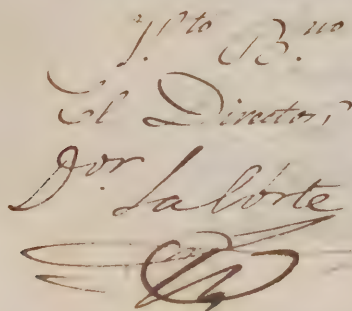 V.to B.no
El Director,
D.or La Corte